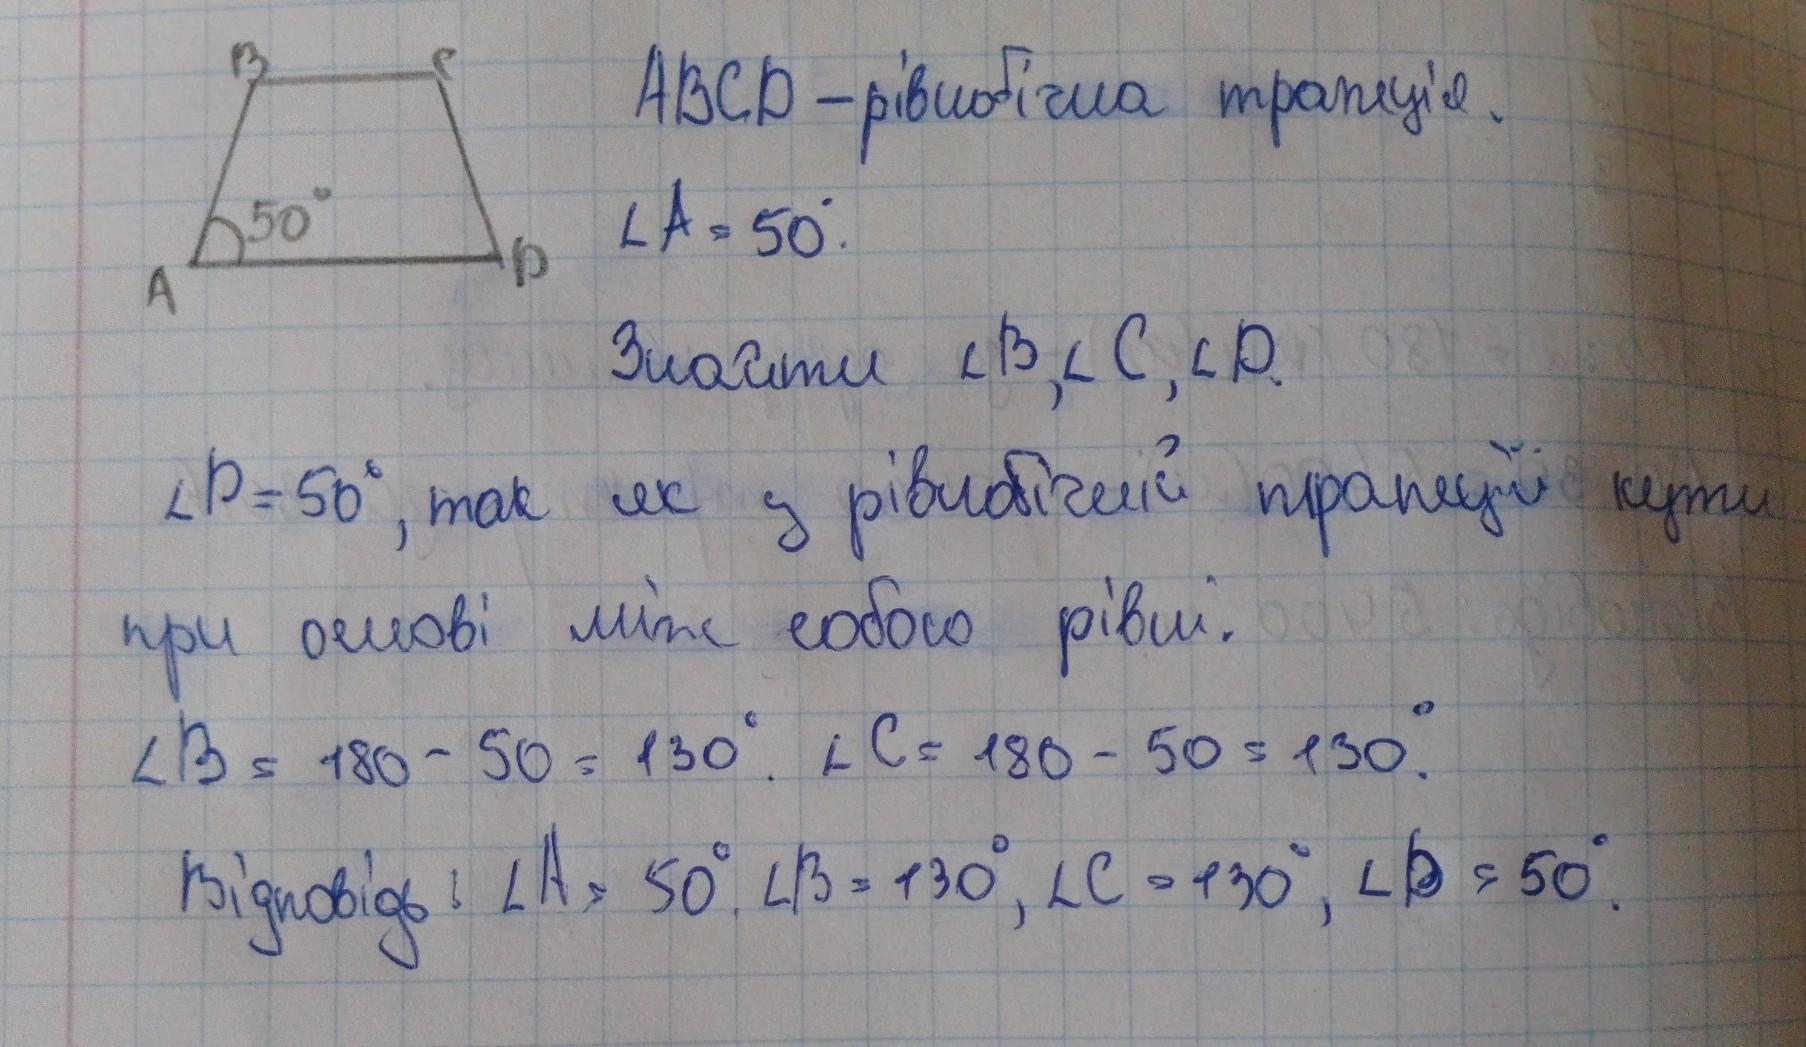 B C
ABCD – рівнобічна трапеція.
50°
∠A = 50°.
A D
Знайти ∠B, ∠C, ∠D.
∠D = 50°, так як у рівнобічній трапеції кути
при основі між собою рівні.
∠B = 180 - 50 = 130°. ∠C = 180 - 50 = 130°.
Відповідь: ∠A = 50°. ∠B = 130°, ∠C = 130°, ∠D = 50°.